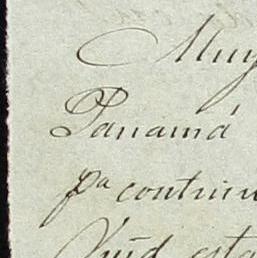 Muy
Panamá
pa contin
Quid esta